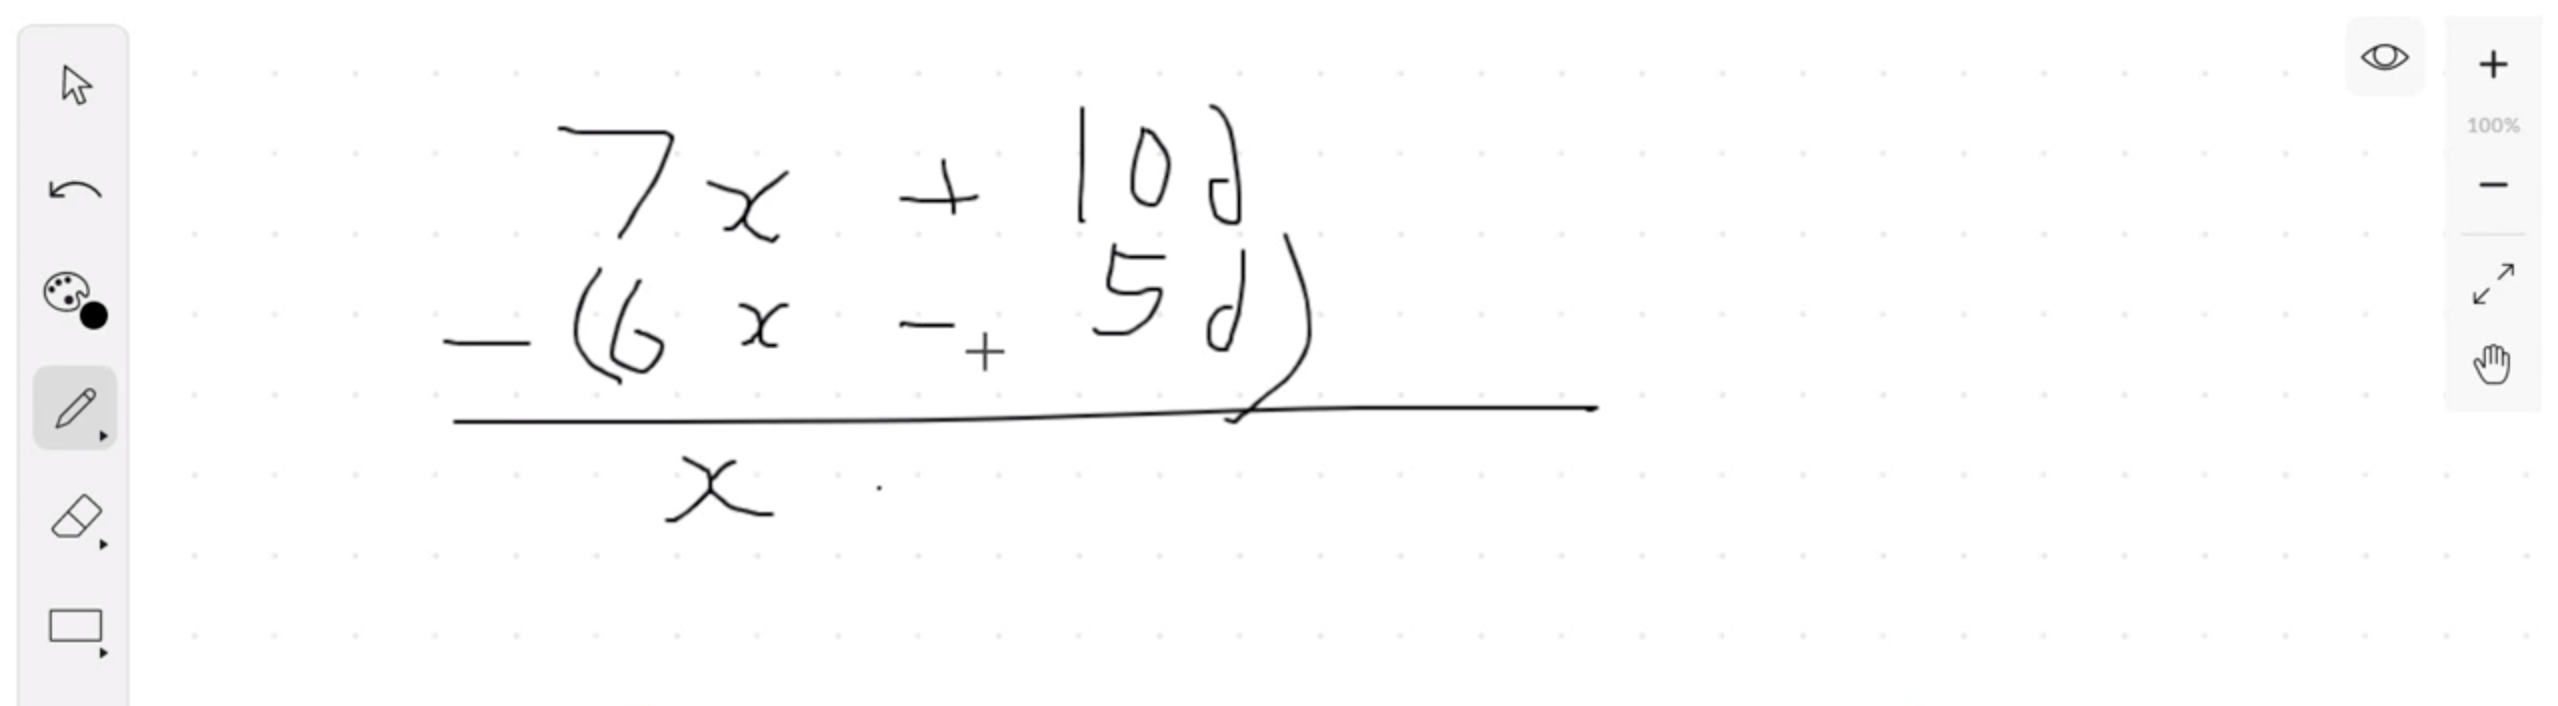 7x + 10d
- (6x - 5d)
x
100%